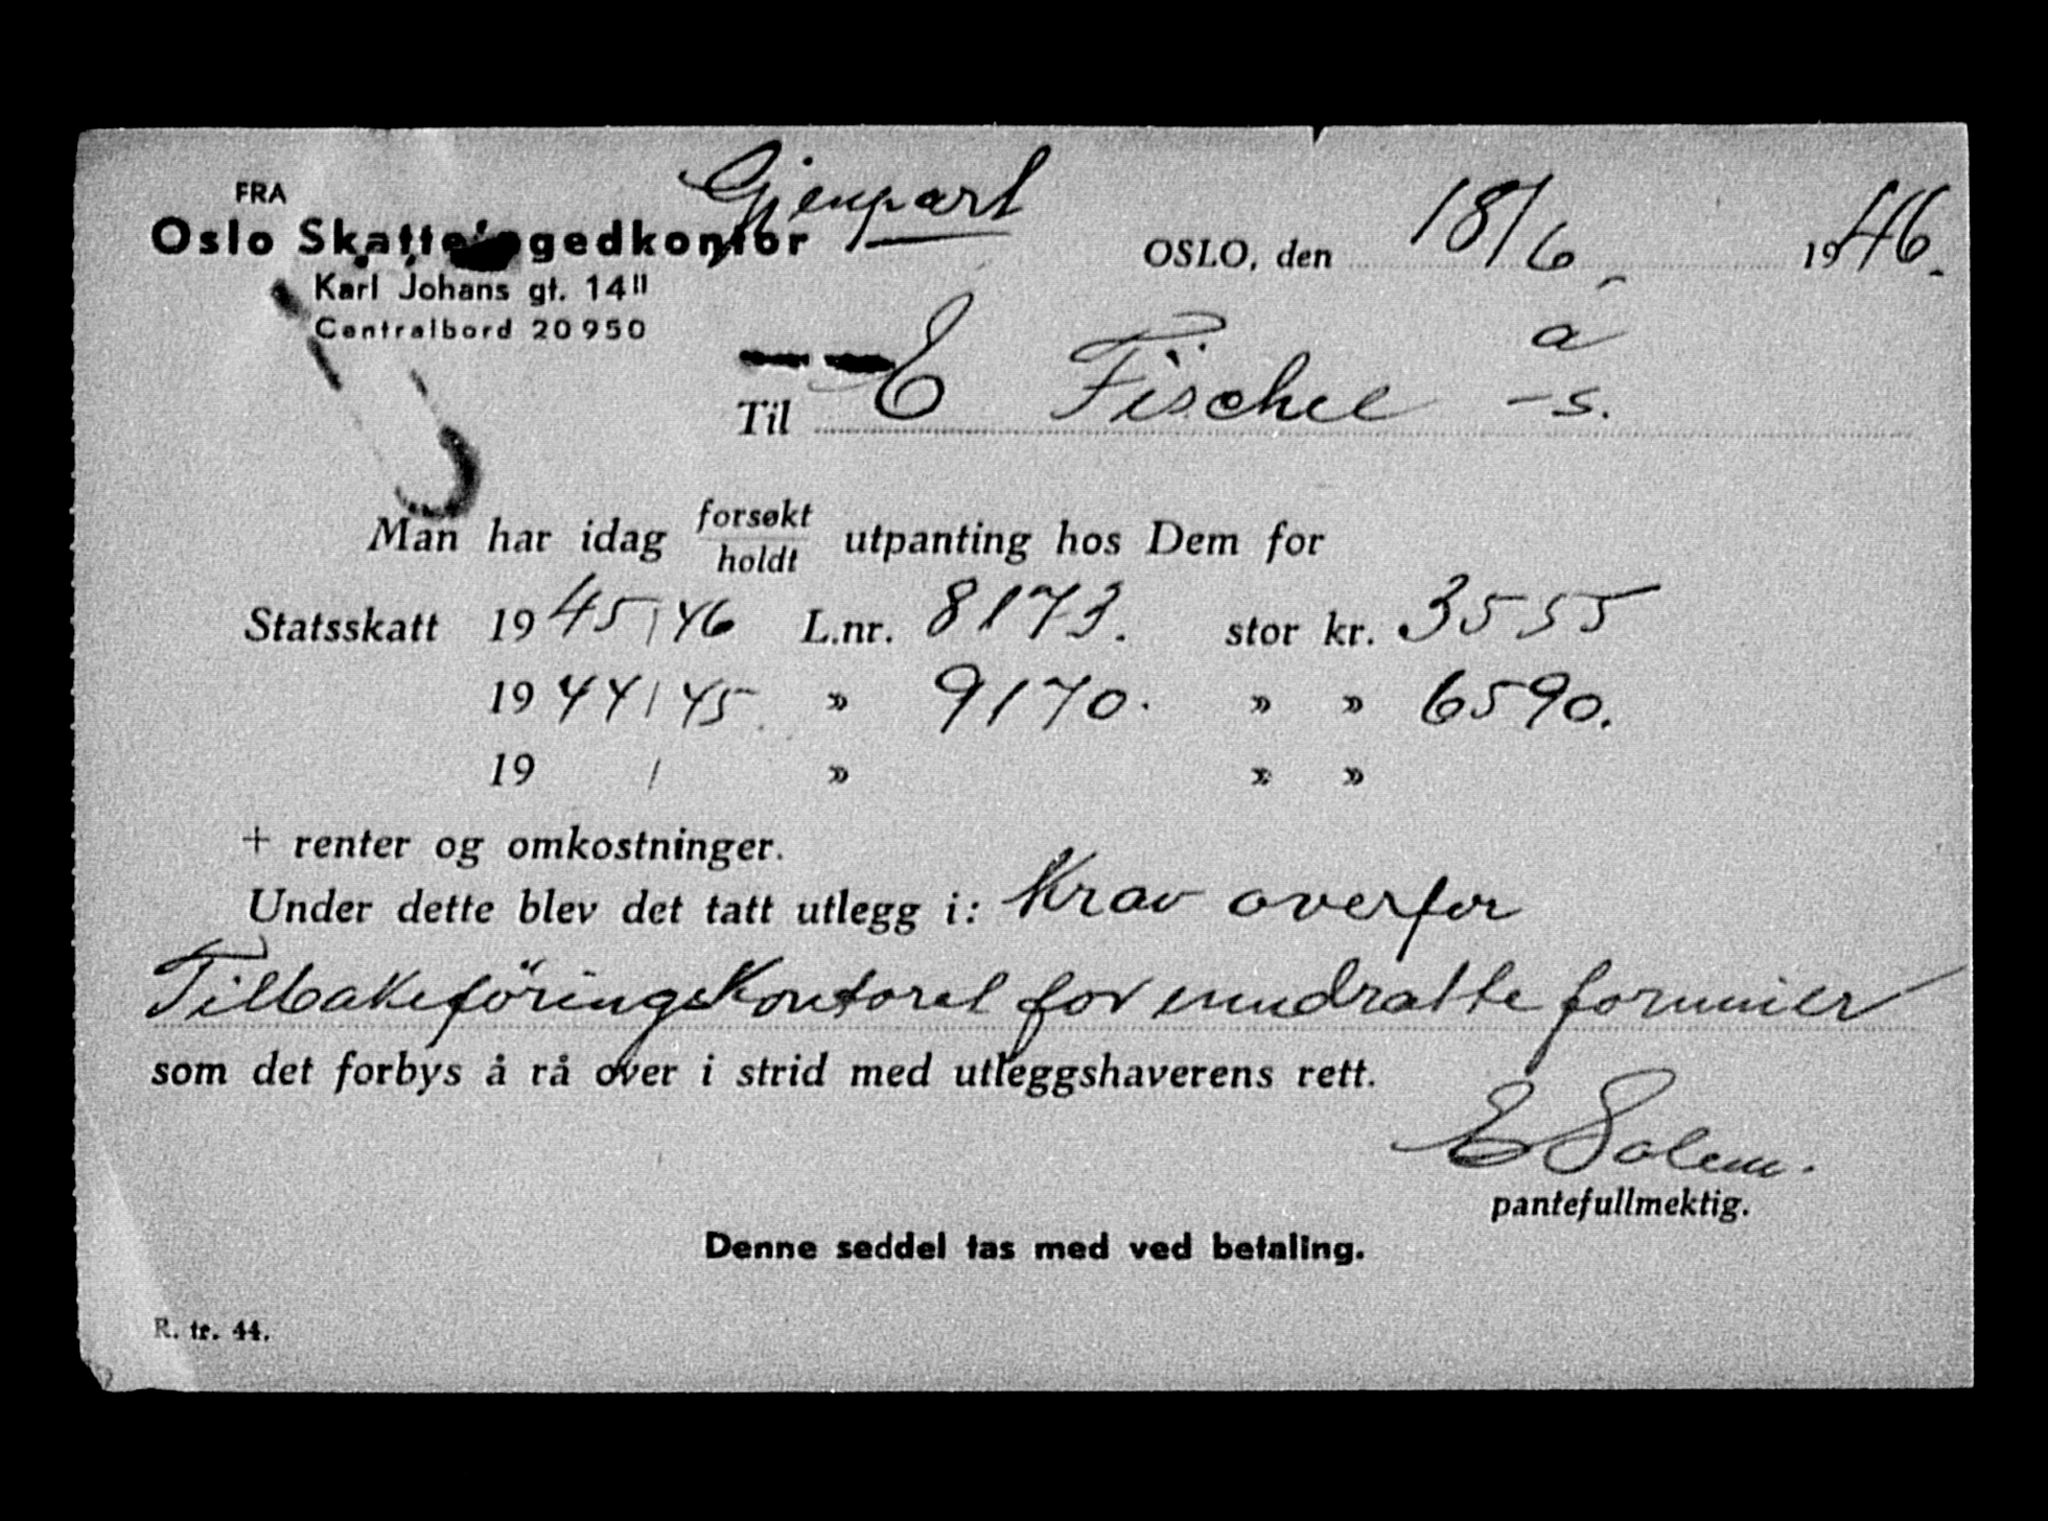 Gjenpart
FRA
Oslo Skattefogedkontor
Karl Johans gt. 14 II
Centralbord 20950
OSLO, den 18/6. 1946.
Til E Fischel a -s.
Man har idag forsøkt/holdt utpanting hos Dem for
Statsskatt 1945/46 L.nr. 8173. stor kr. 3555
1944/45 » 9170. » » 6590.
19 / » » »
+ renter og omkostninger.
Under dette blev det tatt utlegg i: Krav overfor
Tilbakeföringskontoret for inndratte formuer
som det forbys å rå over i strid med utleggshaverens rett.
E Solem.
pantefullmektig.
Denne seddel tas med ved betaling.
R. tr. 44.